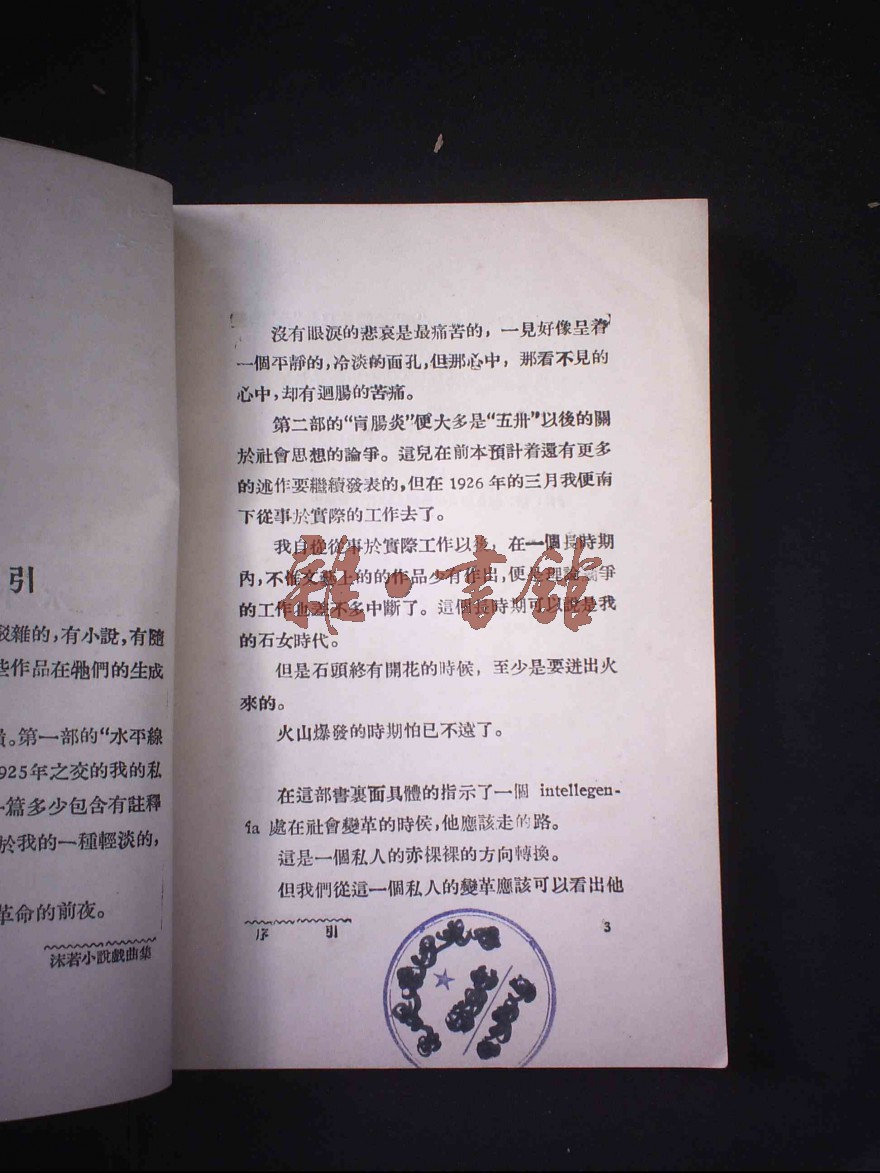 引
殽雜的，有小說，有隨
些作品在牠們的生成
。第一部的“水平線
925年之交的我的私
一篇多少包含有註釋
於我的一種輕淡的，
革命的前夜。
沫若小說戲曲集
沒有眼淚的悲哀是最痛苦的，一見好像呈着
一個平靜的，冷淡的面孔，但那心中，那看不見的
心中，却有迴腸的苦痛。
第二部的“肓腸炎”便大多是“五卅”以後的關
於社會思想的論爭。這兒在前本預計着還有更多
的述作要繼續發表的，但在 1926 年的三月我便南
下從事於實際的工作去了。
我自從從事於實際工作以後，在一個長時期
內，不惟文藝上的的作品少有作出，便是理論鬭爭
的工作也差不多中斷了。這個長時期可以說是我
的石女時代。
但是石頭終有開花的時候，至少是要迸出火
來的。
火山爆發的時期怕已不遠了。
在這部書裏面具體的指示了一個 intellegen-
tia 處在社會變革的時侯，他應該走的路。
這是一個私人的赤裸裸的方向轉換。
但我們從這一個私人的變革應該可以看出他
序 引 3
雜·書館